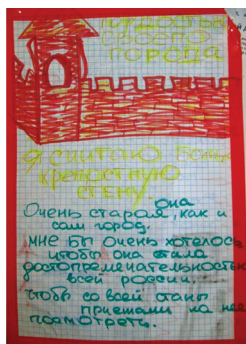 гордостью
своего
города
я считаю
крепостную
стену
она
Очень старая, как и
сам город.
мне бы очень хотелось
чтобы она стала
достопремечательностью
всей россии.
чтобы со всей станы
приезжали на неё
посмотреть.